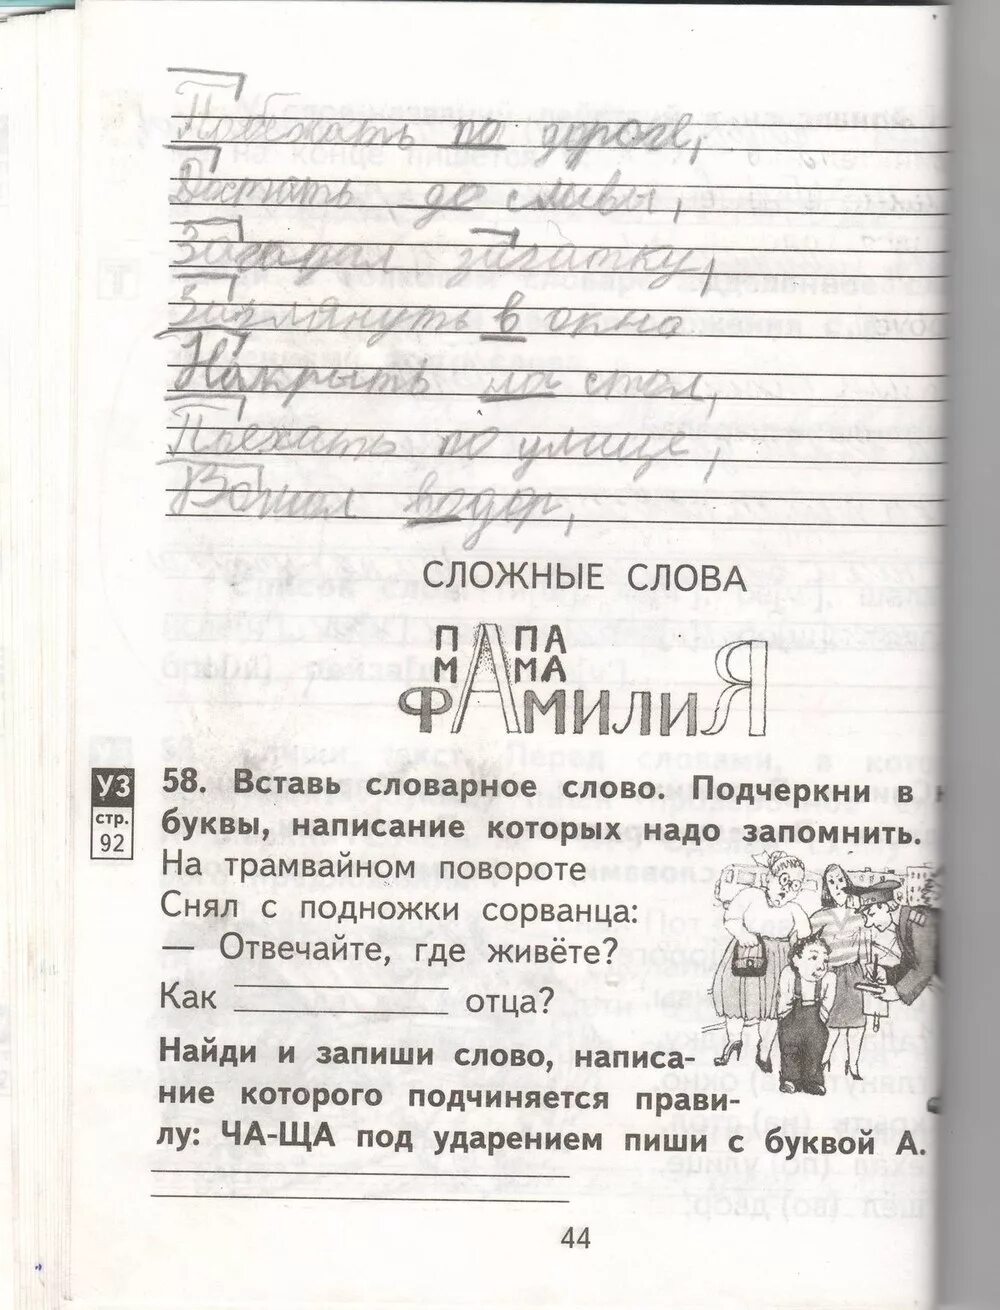 Побежать по дороге,
Достать до сливы,
Загадал загатку,
Заглянуть в окно
Накрыть на стол,
Поехать по улице,
Вошол во двор,
СЛОЖНЫЕ СЛОВА
ПАПА
МАМА
ФАМИЛИЯ
УЗ
стр.
92
58. Вставь словарное слово. Подчеркни в
буквы, написание которых надо запомнить.
На трамвайном повороте
Снял с подножки сорванца:
— Отвечайте, где живёте?
Как отца?
Найди и запиши слово, написа-
ние которого подчиняется прави-
лу: ЧА-ЩА под ударением пиши с буквой А.
44